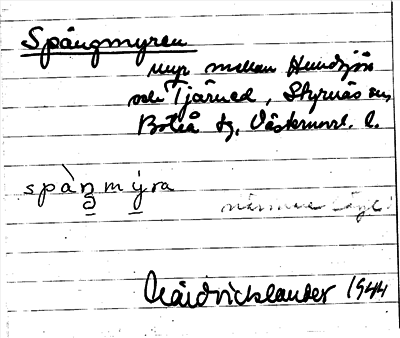 Spångmyren
myr mellan Hundsjön
och Tjärned, Styrnäs sn,
Boteå tg, Västernorrl. l.
spàŋmýra
närmare läge!
Wåidvicklander 1944